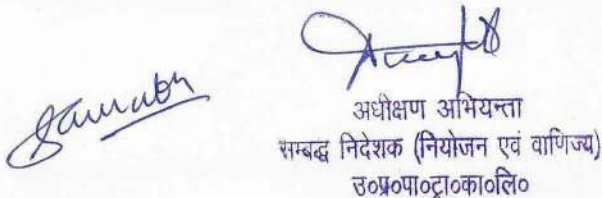 Saurabh
अधीक्षण अभियन्ता
सम्बद्ध निदेशक (नियोजन एवं वाणिज्य)
उ०प्र०पा०ट्रा०का०लि०